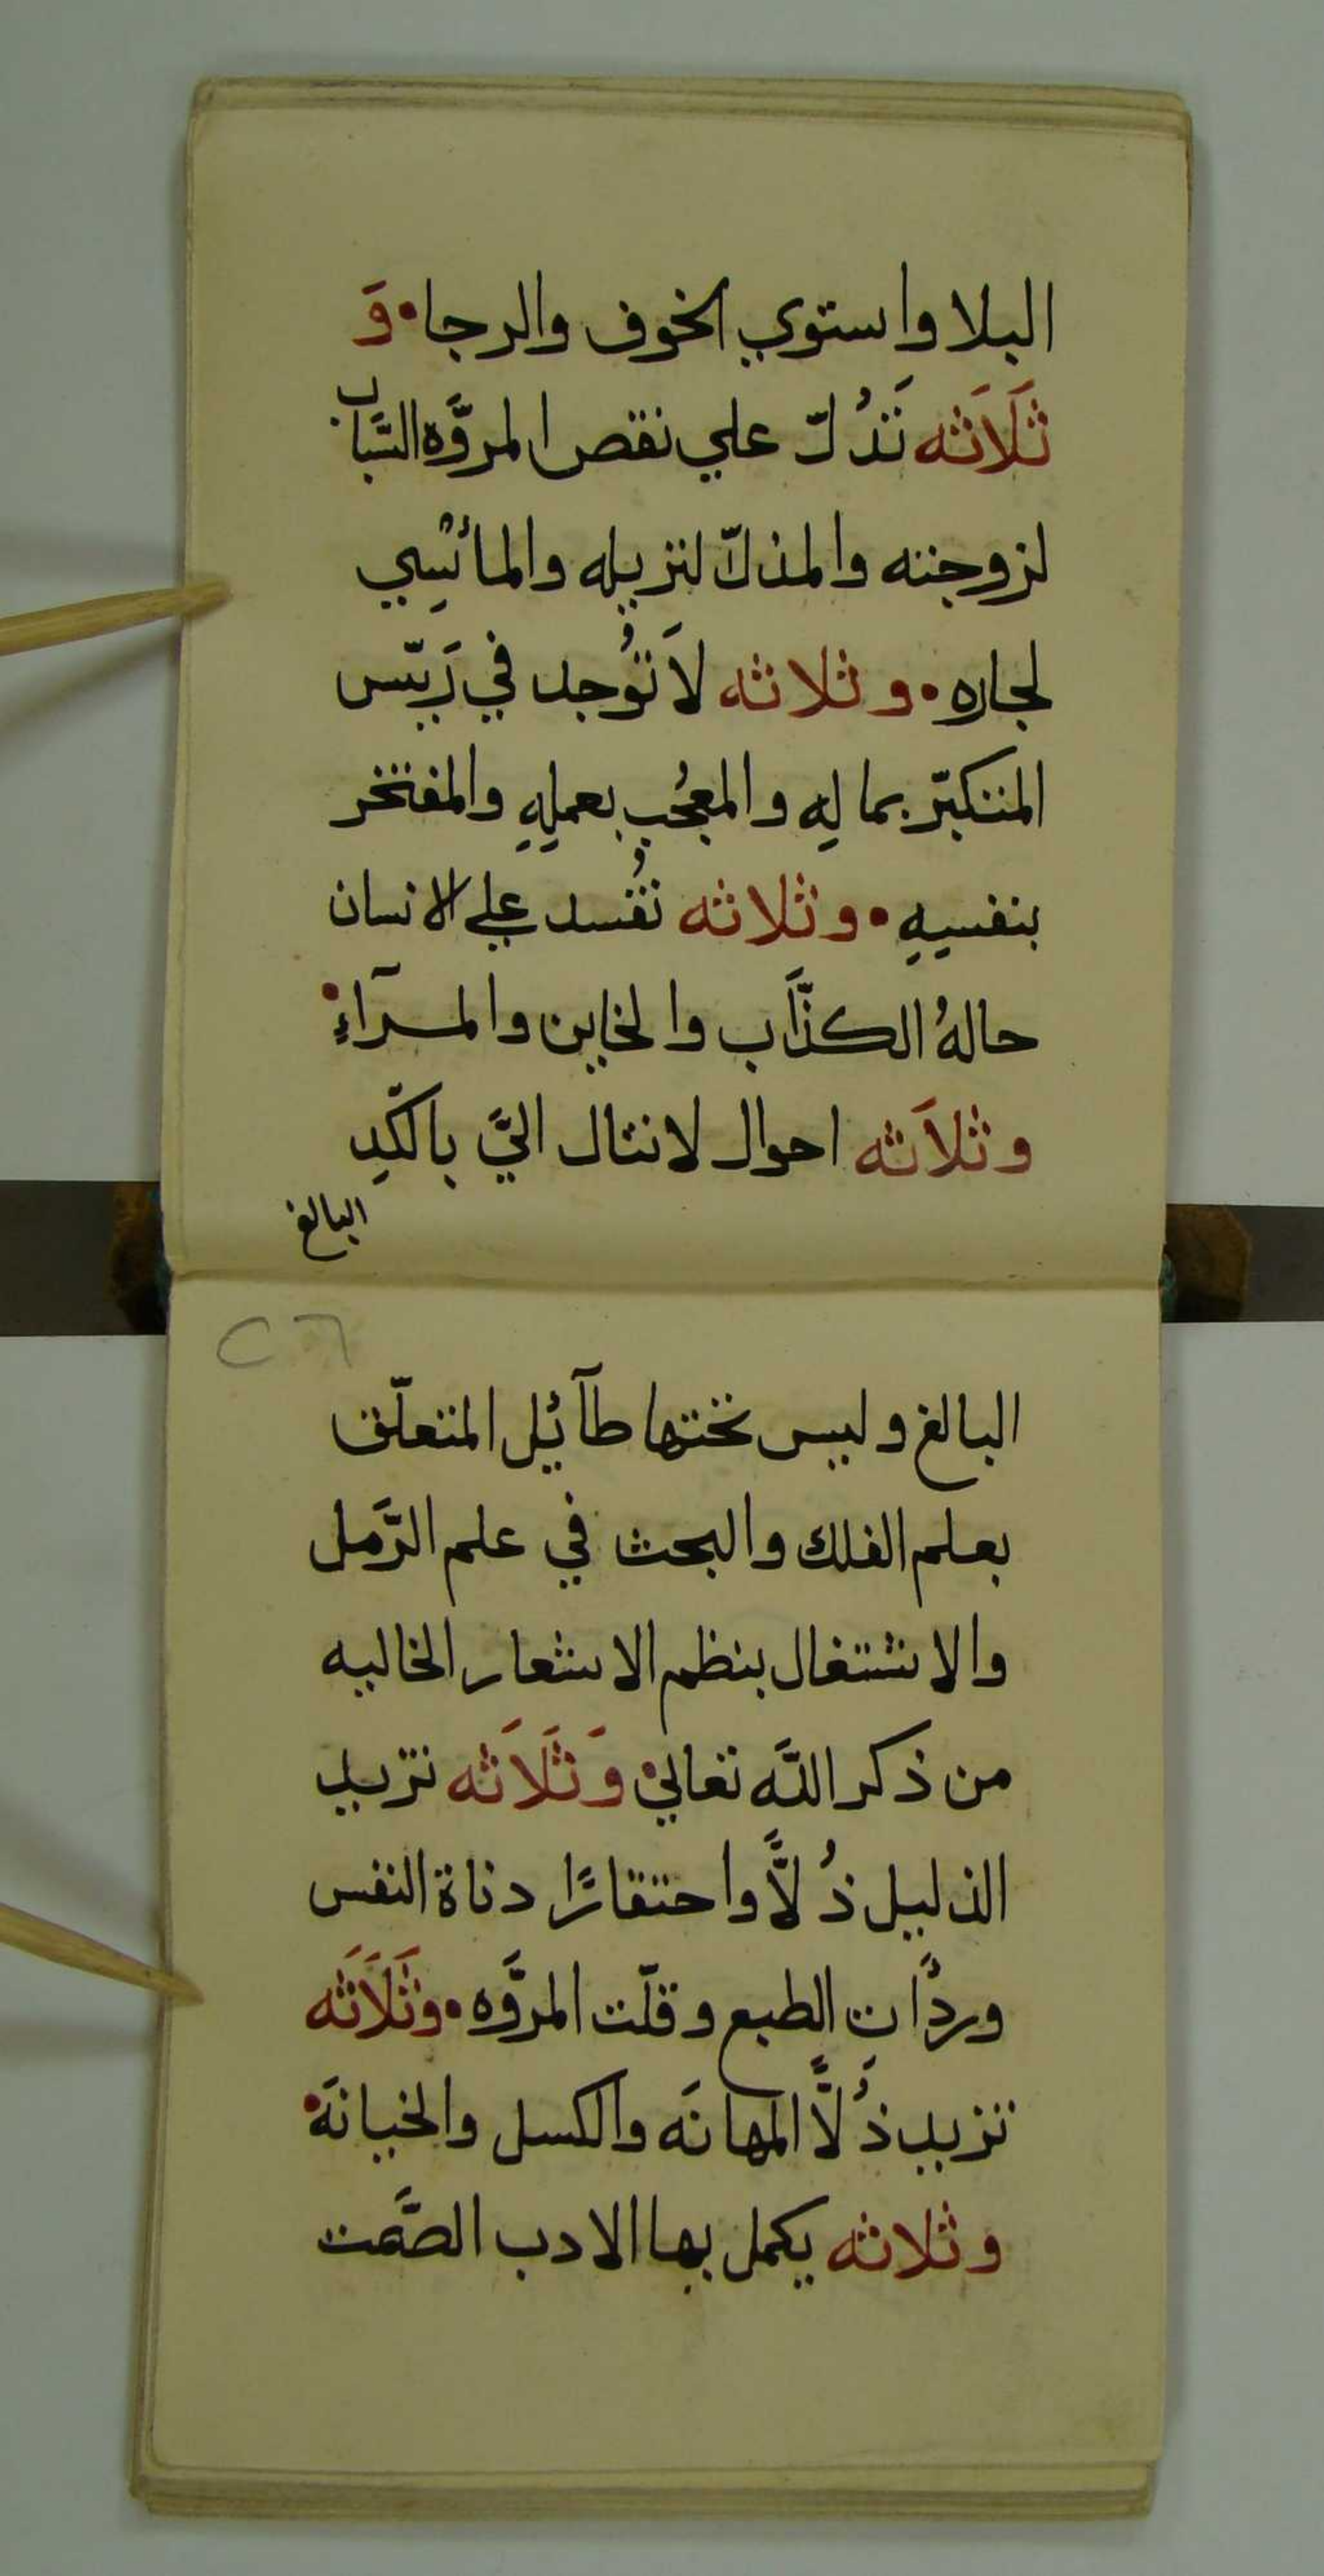 البلا واستوي الخوف والرجا • وَ
ثَلَاَثه تَدُلّ علي نقص المروَّه السَّباب
لزوجته والمذلّ لنزيله والمأسِي
لجاره • وثلاثه لاَ تُوجد في رَييّس
المتكبّر بمالِهِ والمعجُب بعملِهِ والمفتخر
بنفسِهِ • وثلاثه تُفسد علي الانسان
حالهُ الكذَّاب والخاين والمرآءِ •
وثلاَثه احوال لاتنال الَّي بالكّدِ
البالغ
٢٦
البالغ وليس تحتها طآئِل المتعلّق
بعلم الفلك والبحث في علم الرَّمل
والاشتغال بنظم الاشعار الخاليه
من ذكر اللَّه تعالي • وَثَلَاَثه تزيد
الذليل ذُلاًّ واحتقارًا دناة النفس
وردُأتِ الطبع وقلّت المروَّه • وثَلَاَثَه
تزيد ذُلاًّ المهانَه والكسل والخيانَه •
وثلاثه يكمل بها الادب الصَّمت